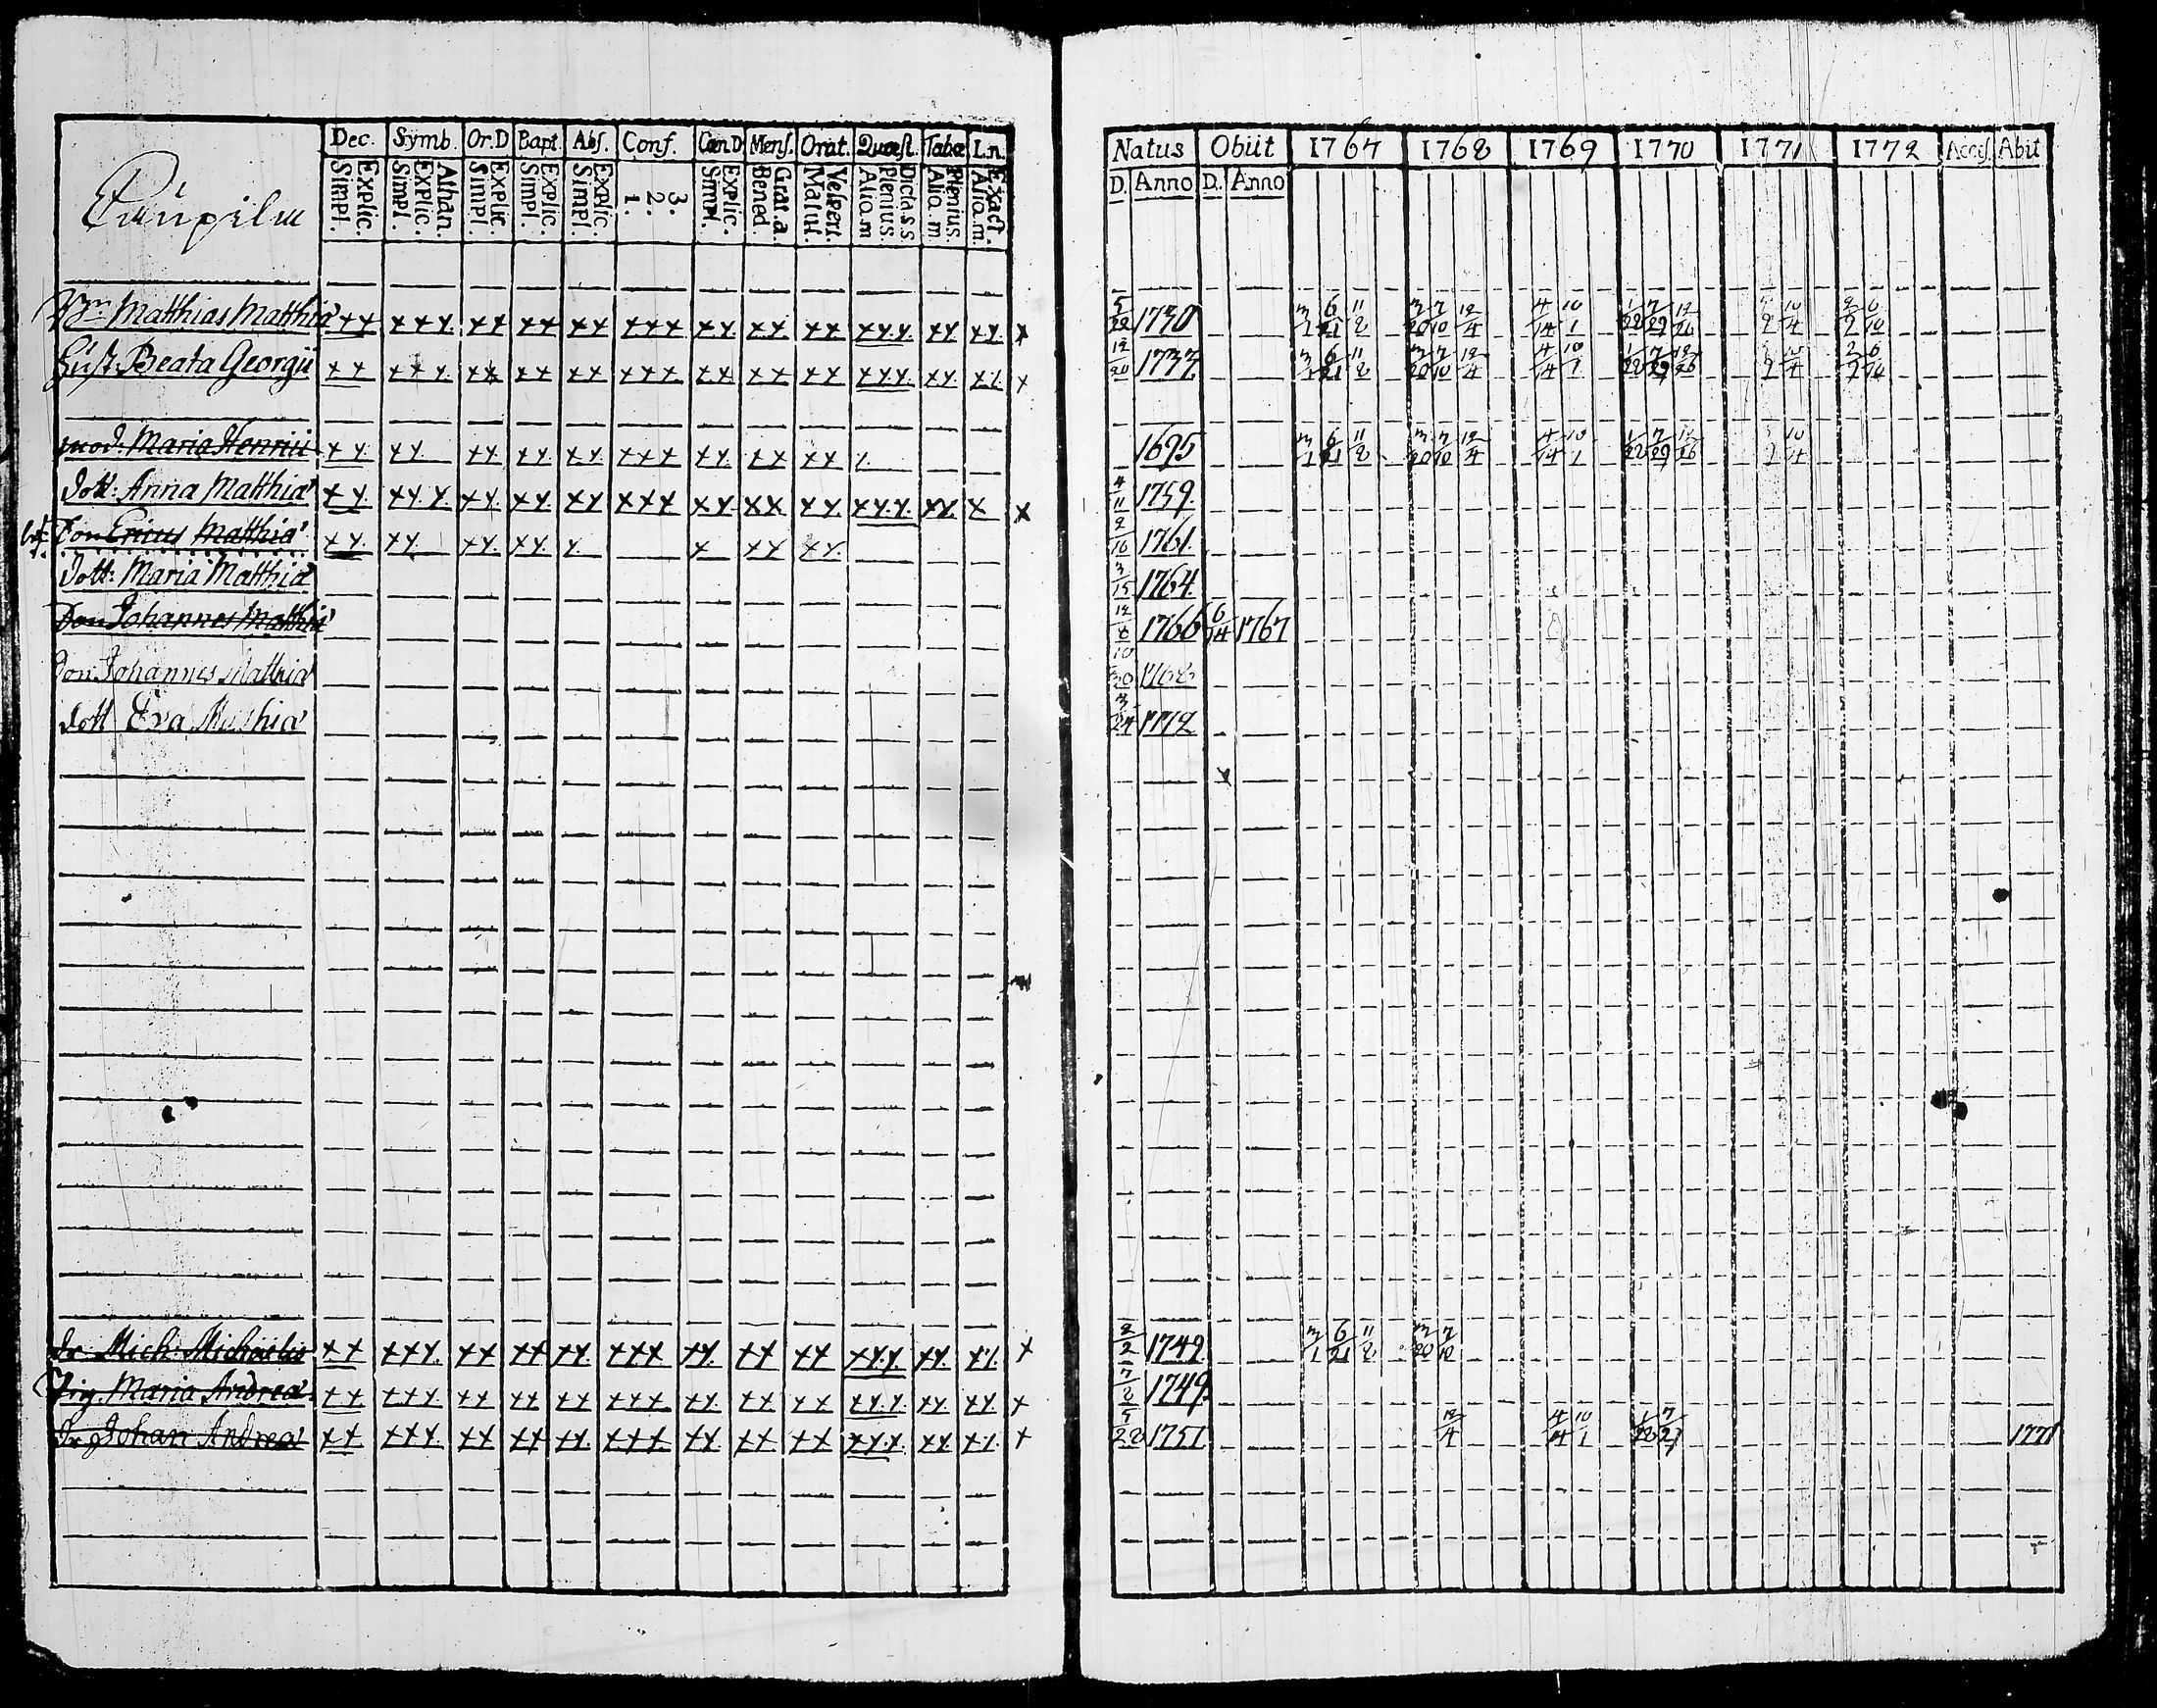 Dec. Symb. Or.D Bapt. Abs. Conf. Cœn D Mens. Orat. Quæst. Tabæ L.n.
Simpl. Explic. Simpl. Explic. Athan. Simpl. Explic. Simpl. Explic. Simpl. Explic. 1. 2. 3. Simpl. Explic. Bened. Grat. a. Matut. Vespert. Alio. m Plenius. Dicta. s.s Alio. m Plenius. Alio. m. Exact.
Natus Obiit 1767 1768 1769 1770 1771 1772 Access. Abit
D. Anno D. Anno
Matthias Matthiæ ++ +++ ++ ++ ++ +++ ++ ++ ++ +++ ++ ++ + 5/22 1730 3/1 6/21 11/2 3/20 7/10 12/4 4/14 10/1 1/22 7/29 12/26 10/4 2/2 6/10
Hust. Beata Georgii ++ +++ ++ ++ ++ +++ ++ ++ ++ +++ ++ ++ + 12/20 1737 3/1 6/21 11/2 3/20 7/10 12/4 4/14 10/1 1/22 7/29 12/26 10/4 2/2 6/10
mod. Maria Henrici ++ ++ ++ ++ ++ +++ ++ ++ ++ 1695 3/1 6/21 11/2 3/20 7/10 12/4 4/14 10/1 1/22 7/29 12/26 10/4
Dott: Anna Matthiæ ++ +++ ++ ++ ++ +++ ++ ++ ++ +++ ++ + + 4/11 1759.
Son Ericus Matthiæ ++ ++ ++ ++ + + ++ ++ 2/16 1761.
Dott: Maria Matthiæ 3/15 1764.
Son Johannes Matthiæ 12/8 1766 6/14 1767
Son Johannes Matthiæ 10/30 1768
Dott Eva Matthiæ 3/24 1772
Dr. Mich: Michaelis ++ +++ ++ ++ ++ +++ ++ ++ ++ +++ ++ ++ + 2/2 1749. 3/1 6/21 11/2 3/20 7/10
Pig. Maria Andreæ ++ +++ ++ ++ ++ +++ ++ ++ ++ +++ ++ ++ + 7/2 1749.
Dr. Johan Andreæ ++ +++ ++ ++ ++ +++ ++ ++ ++ +++ ++ ++ + 5/22 1751 12/4 4/14 10/1 1/22 7/29 1771